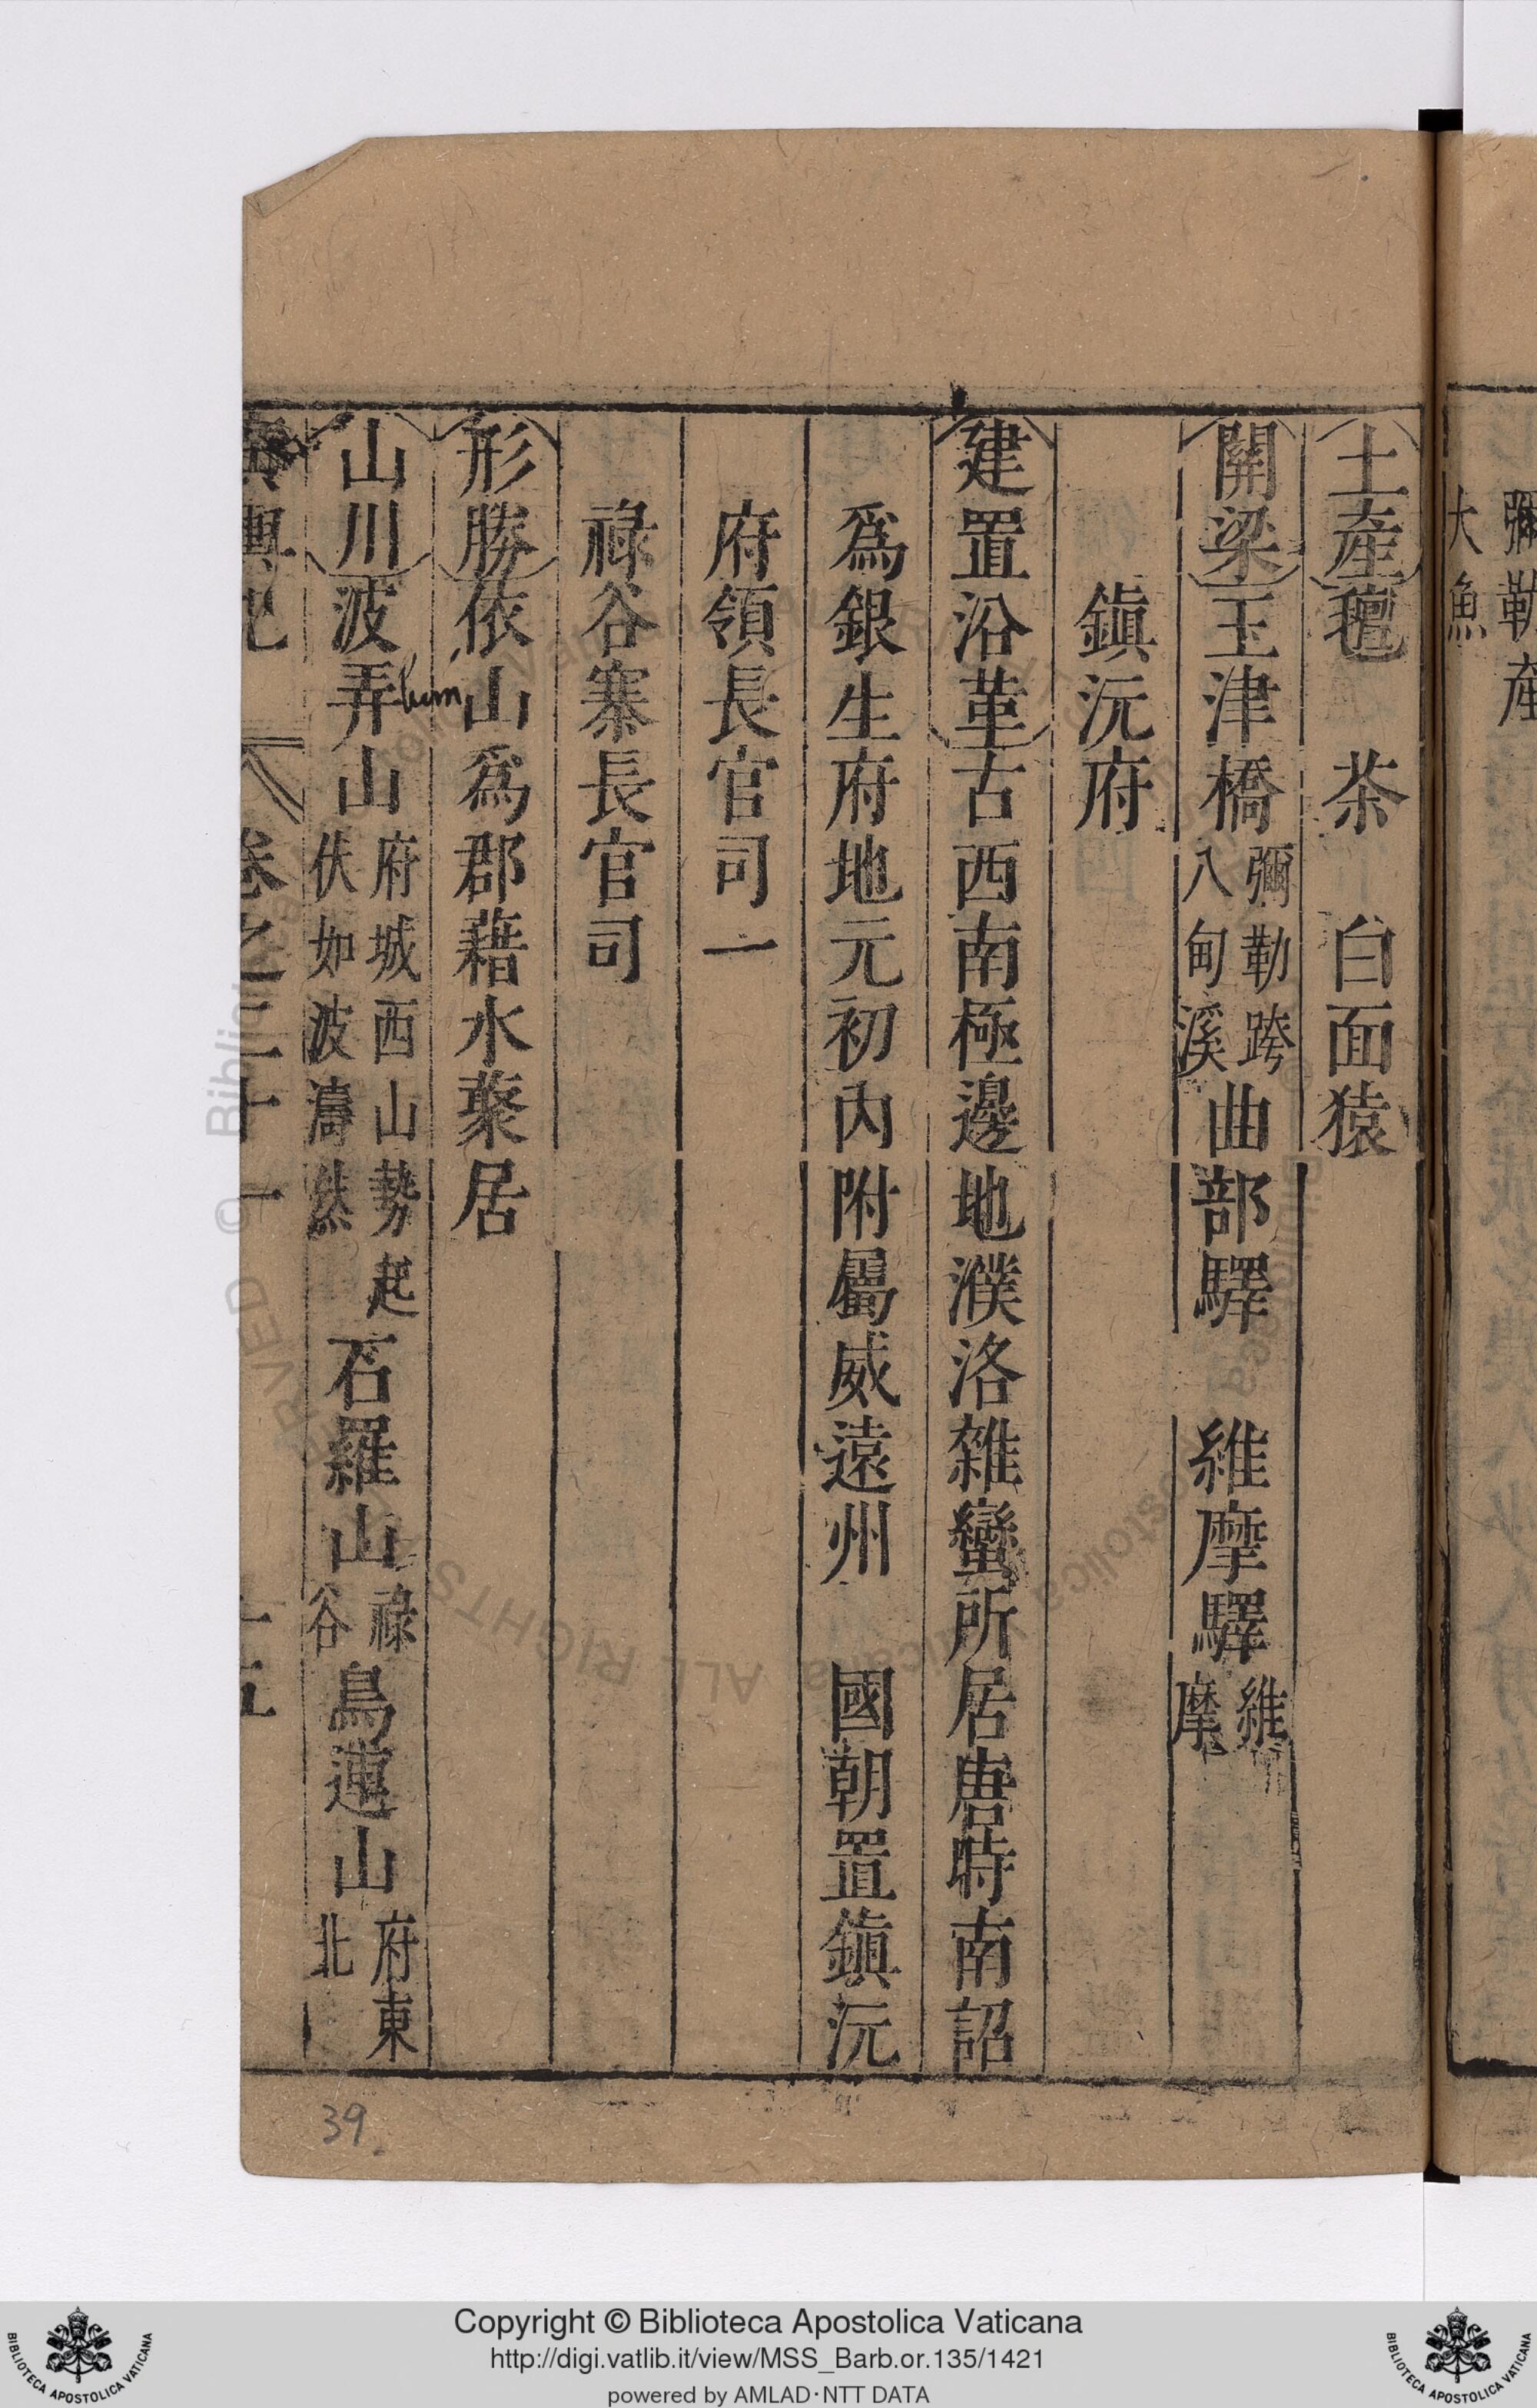 彌勒產
大魚
土產氊　茶　白面猿
關梁玉津橋彌勒跨八甸溪曲部驛　維摩驛維摩
鎮沅府
建置沿革古西南極邊地濮洛雜蠻所居唐時南詔
爲銀生府地元初內附屬威遠州　國朝置鎮沅
府領長官司一
祿谷寨長官司
形勝依山爲郡藉水聚居
山川波弄山府城西山勢起伏如波濤然石羅山祿谷烏連山府東北
lum
輿記　卷之二十一　十五
39
© Biblioteca Apostolica Vaticana ALL RIGHTS RESERVED
Copyright © Biblioteca Apostolica Vaticana
http://digi.vatlib.it/view/MSS_Barb.or.135/1421
powered by AMLAD·NTT DATA
BIBLIOTECA APOSTOLICA VATICANA
BIBLIOTECA APOSTOLICA VATICANA